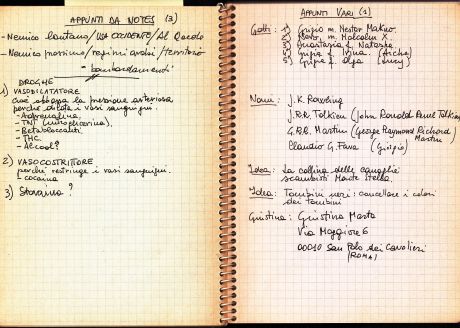 APPUNTI DA NOTES (3)
- Nemico lontano/USA OCCIDENTE/Al Qaeda
- Nemico prossimo/regimi arabi/territorio
- bombardamenti
DROGHE
1) VASODILATATORE
che abbassa la pressione arteriosa
perché dilata i vasi sanguigni.
- Adrenalina.
- TNT (nitroglicerina).
- Betabloccanti.
- THC.
- Alcool?
2) VASOCOSTRITTORE
perché restringe i vasi sanguigni.
- cocaina
3) Stovaina?
APPUNTI VARI (1)
Gatti: 1) Grigio m. Nestor Makno.
2) Nero, m. Malcolm X.
3) Anastasia f. Natasha.
4) Grigia f. Irina.
5) Grigia f. Olga (Lucy)
Nomi: J.K. Rowling
J.R.R. Tolkien (John Ronald Reuel Tolkien)
G.R.R. Martin (George Raymond Richard)
Martin
Claudio G. Fava (Giorgio)
Idea: La collina delle canaglie
scambisti Monte Stella.
Idea: Tombini neri: cancellare i colori
dei tombini
Giustina: Giustina Marta
Via Maggiore 6
00010 San Polo dei Cavalieri
(ROMA)